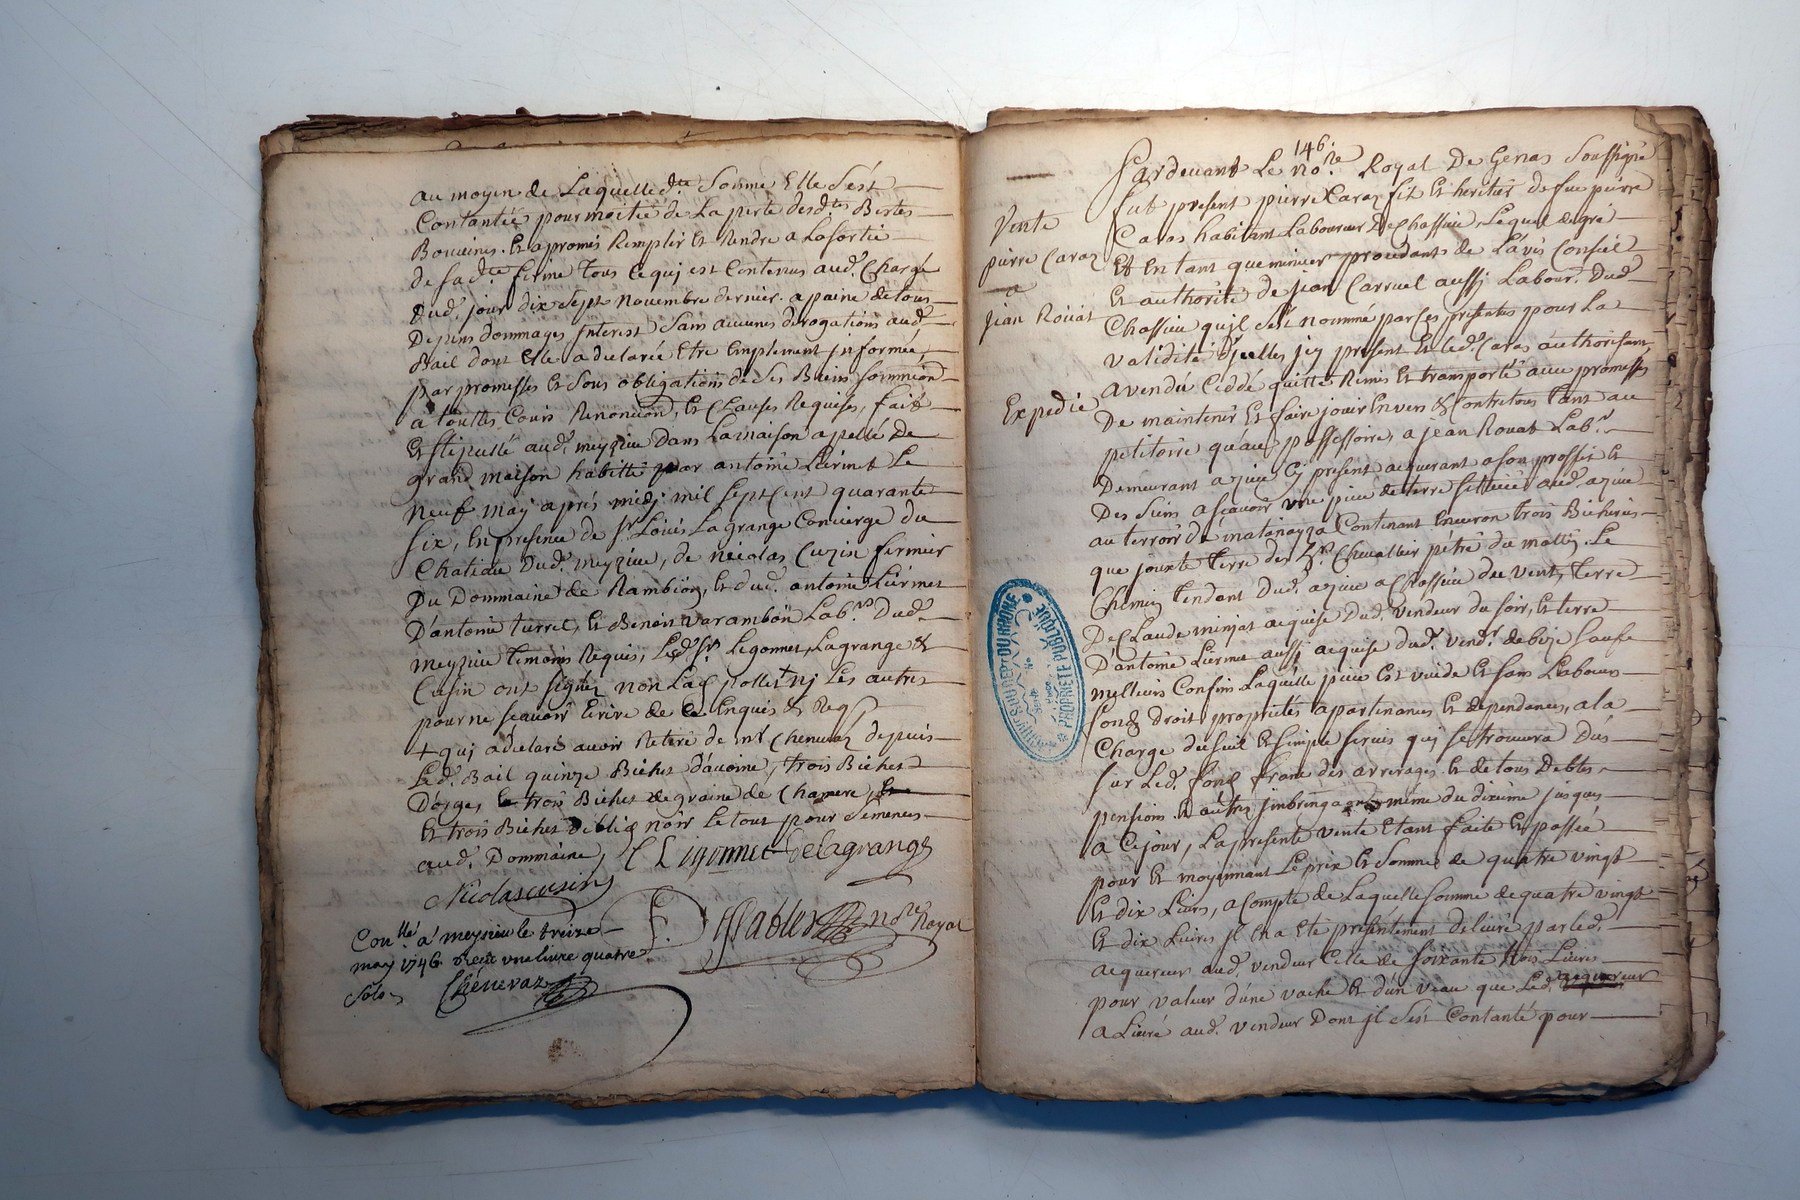 au moyen de Laquelle d.te Somme Elle s'est
Contantée pour moitié de La perte desd.tes Bestes
Bouuines. Et a promis Remplir Et Rendre a La sortie
de sa d.te ferme tous Ce quj est Contenus aud. Chargé
Dud. jour dix sept novembre dernier. a paine de tous
Depens dommages, jnterest Sans aucunes derogations aud.
Bail dont Elle a declarée Etre Emplement jnformée,
par promesses Et Sous obligations de Ses Biens Sommiond
a touttes Cours Renonciaon, Et Clauses Requises, fait
Et stipullé aud. meyzieu Dans La maison apellé De
grand maison habitté par antoine Liermet Le
neuf may aprés midj mil sept Cent quarante
six, En presence de S.r Loüis La grange Concierge du
Chateau Dud. meyzieu, de nicolas Cuzin fermier
Du Dommaine de Rambion, Et dud. antoine Liermet
D'antoine turrel, Et Benoist varambon Lab.rs Dud.
meyzieu temoins Requis, Lesd. S.rs Legonnet, Lagrange &
Cusin ont signéz non Lad pollet + nj Les autres
pour ne scauoir Ecrire de Ce Enquis & Req
+ quj a declaré auoir Retiré de mr Chenevaz depuis
Led. Bail quinze Bichet d'auoine, trois Bichet
D'orges trois Bichet de graine de Chanvre
Et trois Bichet de bled noir Le tout pour Semences
aud. Dommaine, C Ligonnet Delagrange
Nicolas cusin
F. noe. Royal
Con.llé a meyzieu le treize
may 1746. recu une livre quatre
sols Chenevaz
146.
Pardeuant Le no.re Royal De Genas Soussigné
fut present pierre Caraz fils Et heritier de feu pierre
Caras habitant Laboureur De Chassieu, Lequel de gré
Et En tant que mineur procedant de L'avis Conseil
Et authorité de jean Carruel aussj Labour. Dud.
Chassieu qu'jl s'est nommé par Ces presentes pour La
validité d'jcelles jcy present Et led. Caras authorisant
a vendu Ceddé quitté Remis Et transporté auec promesses
De maintenir Et faire jouir Envers & Contre tous tant au
petitoire qu'au possessoire, a jean Rouat Lab.r
Demeurant a zieu Cy present acquerant a son proffit Et
Des Siens a scauoir vne piece de terre Scittuée aud. azieu
au terroir de matanazza Contenant Enuiron trois Bicherées
que jouxte terre des S.rs Chevallier pétré du matin. Le
Chemin tendant Dud. azieu a Chassieu du vent, terre
De Claude minjat acquise Dud. vendeur du soir, Et terre
D'antoine Liermet aussj acquise dud. vend.r de bize Saufs
meilleurs Confins Laquelle piece Est vuide Et sans Labours
fonds droit proprietés apartenances Et dependances, a la
Charge du seul Et simple seruis quj se trouuera Dus
sur Led. fond franc des arrerages Et de tous Debtes
pensions Et autres jusques
a Ce jour, La presente vente Etant faite Et passée
pour Et moyennant Le prix Et Somme de quatre vingt
Et dix Liures, a Compte de Laquelle Somme de quatre vingt
Et dix Liures jl En a Eté presentement deliuré par led.
acquereur aud. vendeur Celle de Soixante trois Liures
pour valeur d'une vache Et d'un veau que Led. acquereur
a Liuré aud. vendeur Dont jl s'est Contanté pour
Vente
pierre Caraz
a
jean Roüat
Expedié
PROPRIETE PUBLIQUE